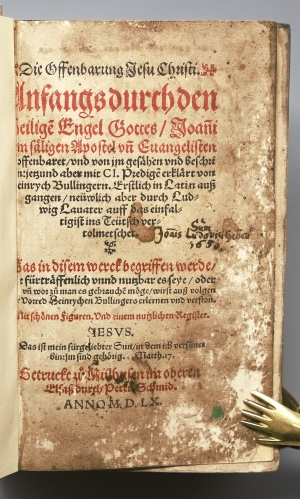 Die Offenbarung Jesu Christi.
Anfangs durch den
heiligē Engel Gottes / Joañi
dem säligen Apostel vñ Euangelisten
geoffenbaret / vnd von jm gesähen vnd beschri
ben: jetzund aber mit CI. Predigē erklärt von
Heinrych Bullingern. Erstlich in Latin auß
gangen / neüwlich aber durch Lud-
wig Lauater auff das einfal-
tigist ins Teütsch ver-
tolmetschet.
Sum
1650
Was in disem werck begriffen werde /
fürträffenlich vnnd nutzbar es seye / oder
vñ wozů man es gebrauchē möge / wirst auß volgen
Vorred Heinrychen Bullingers erlernen vnd verston.
Mit schönen Figuren, Vnd einem nutzlichen Register.
JESVS.
Das ist mein fürgeliebter Sun / in dem ich versünet
bin: jm sind gehörig. Matth. 17.
Getruckt zů Mülhusen im oberen
Elsaß / durch Peter Schmid.
ANNO M. D. LX.